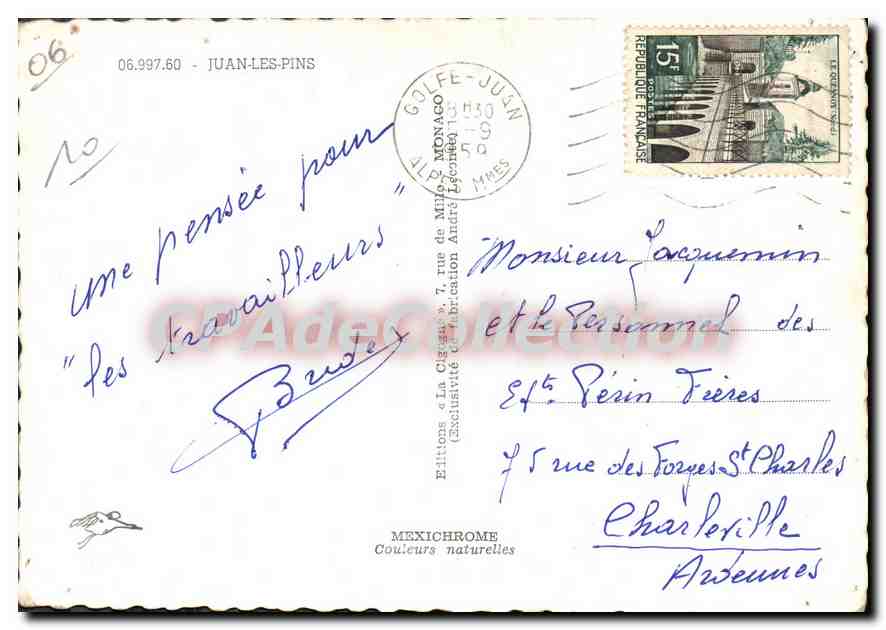 06
06.997.60 - JUAN-LES-PINS
10
GOLFE-JUAN
ALPES Mmes
15F
POSTES
REPUBLIQUE FRANÇAISE
LE QUESNOY (Nord)
une pensée pour
"les travailleurs"
Editions « La Cigogne », 7, rue de Millo, MONACO
(Exclusivité de fabrication André Leconte)
Monsieur Jacquemin
et le Personnel des
Ets Périn Frères
75 rue des Forges St Charles
Charleville
Ardennes
MEXICHROME
Couleurs naturelles
CPAdeCollection